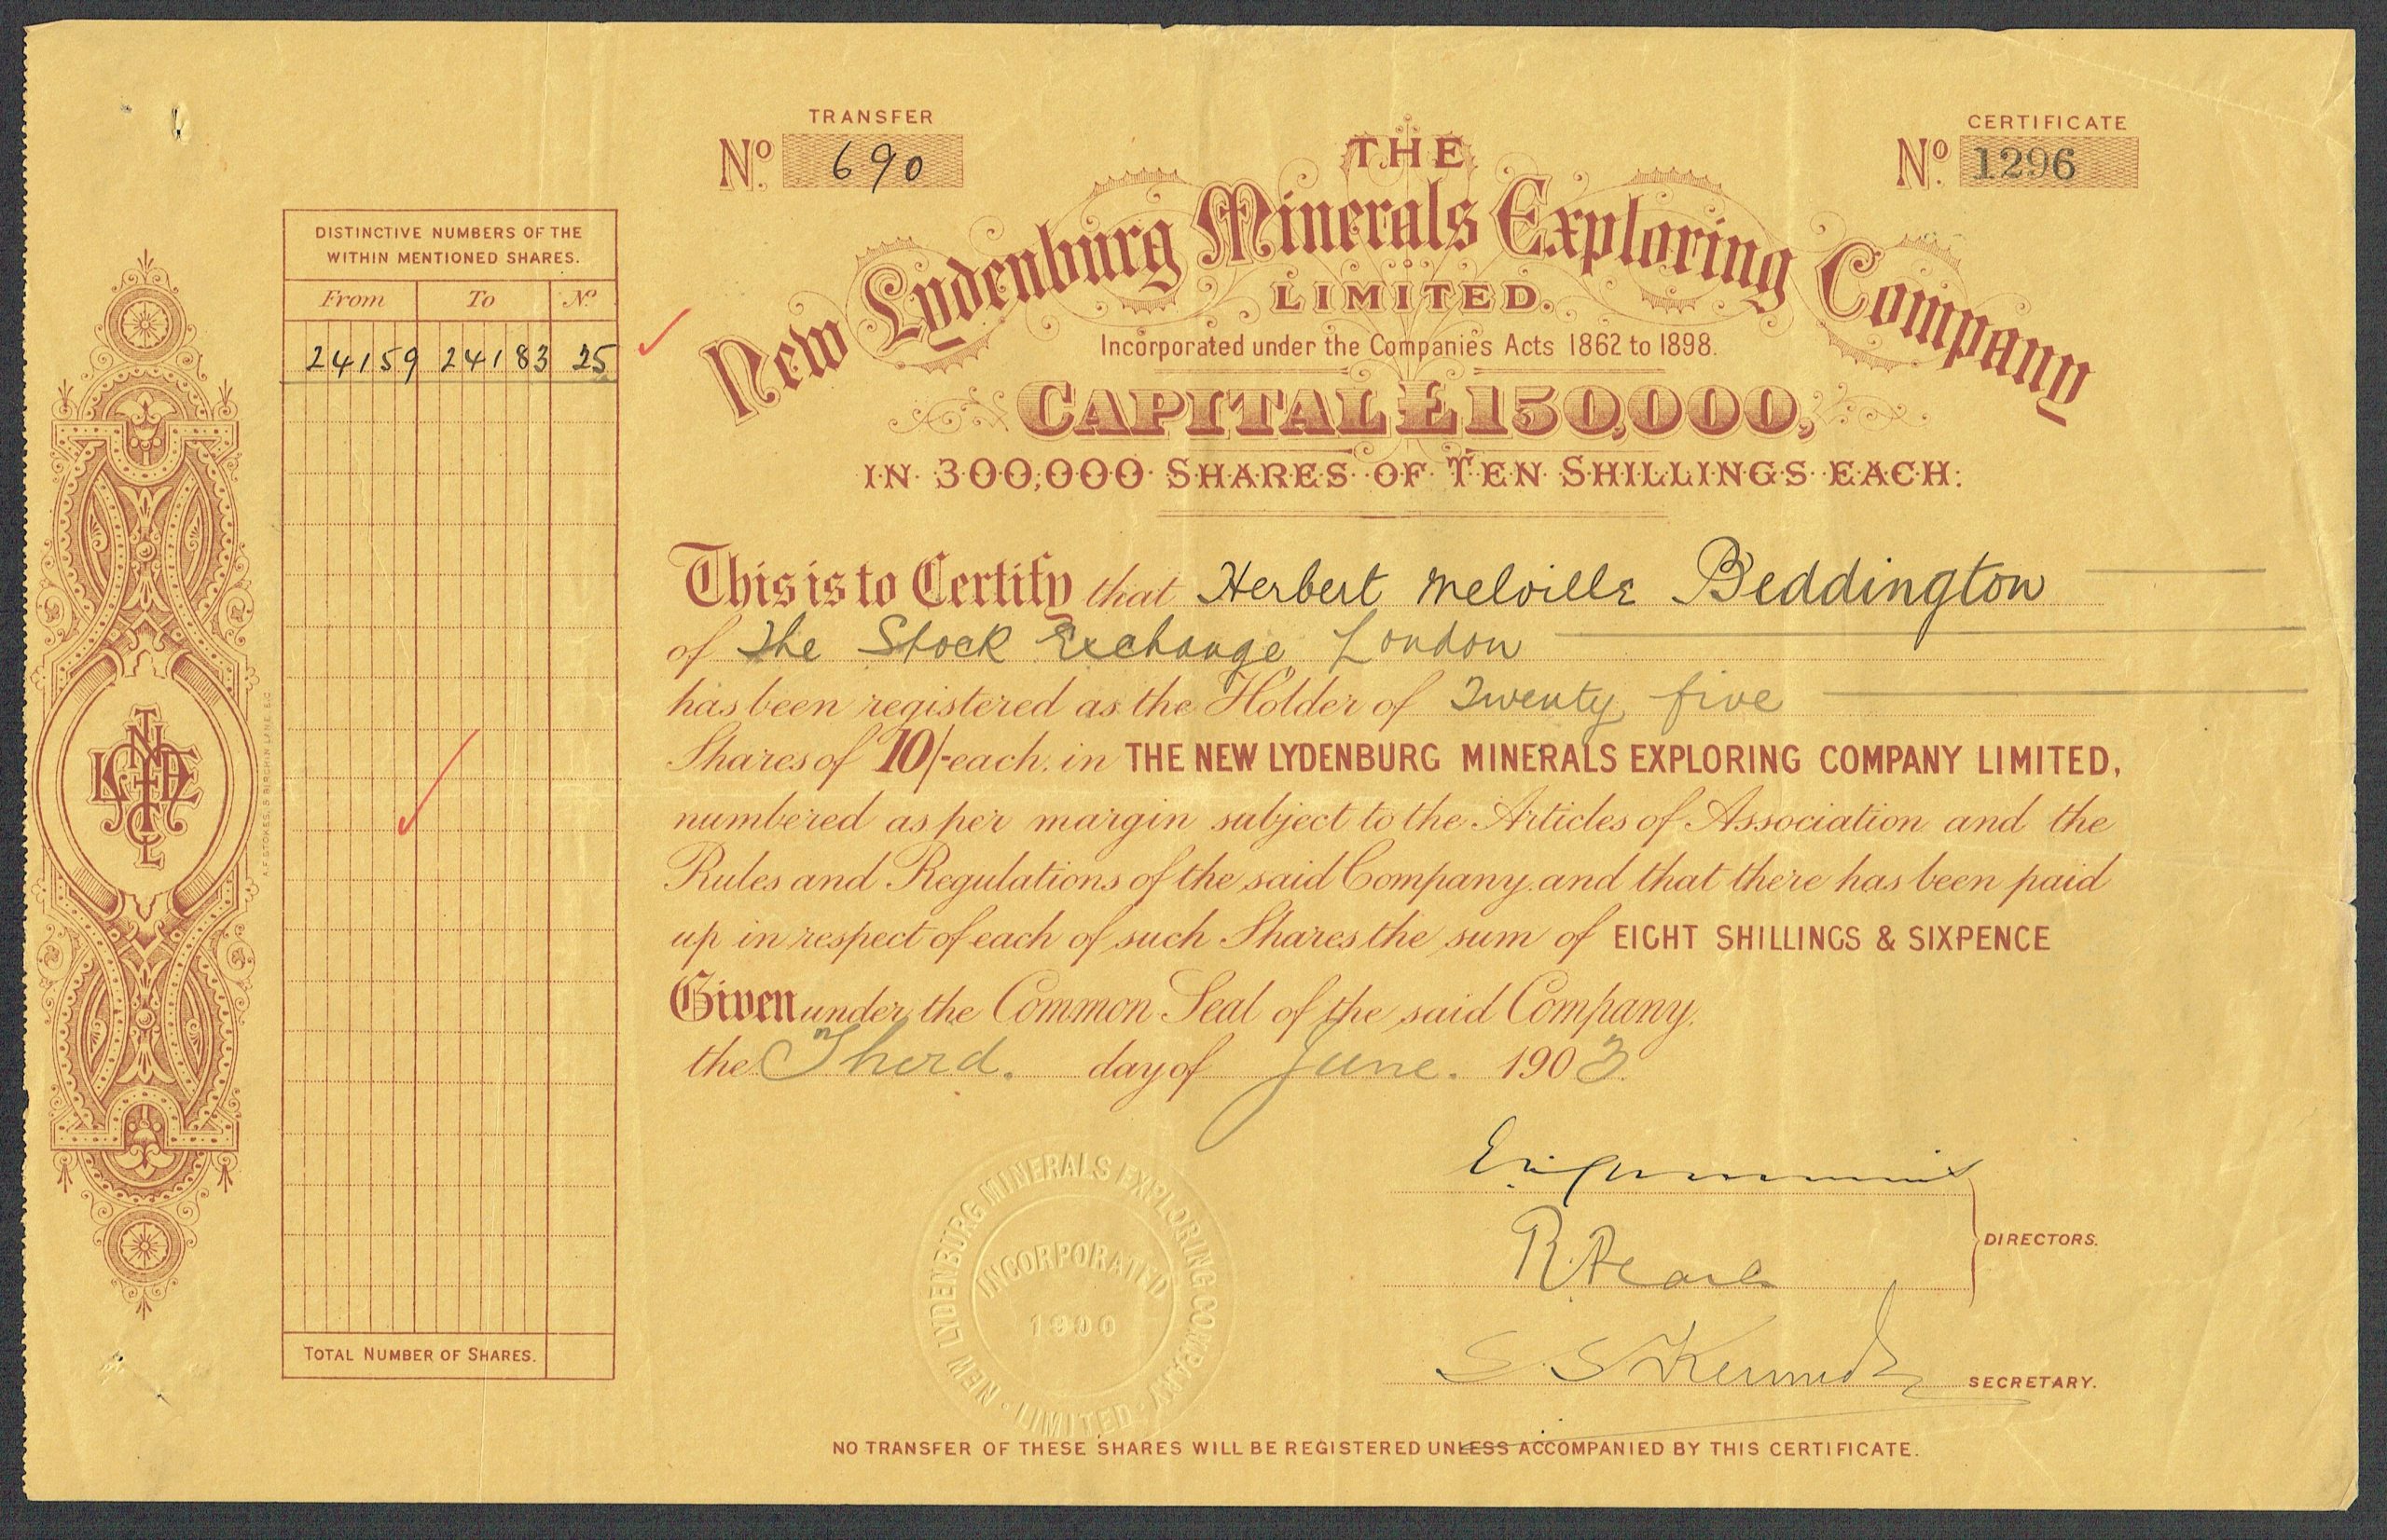 TRANSFER
No. 690
CERTIFICATE
No. 1296
THE
New Lydenburg Minerals Exploring Company
LIMITED.
Incorporated under the Companies Acts 1862 to 1898.
CAPITAL £150,000,
IN 300,000 SHARES OF TEN SHILLINGS EACH:
DISTINCTIVE NUMBERS OF THE
WITHIN MENTIONED SHARES.
From To No.
24159 24183 25
TOTAL NUMBER OF SHARES.
A.F. STOKES, 5 BIRCHIN LANE E.C.
This is to Certify that Herbert Melville Beddington
of The Stock Exchange, London
has been registered as the Holder of Twenty five
Shares of 10/- each, in THE NEW LYDENBURG MINERALS EXPLORING COMPANY LIMITED,
numbered as per margin subject to the Articles of Association and the
Rules and Regulations of the said Company, and that there has been paid
up in respect of each of such Shares the sum of EIGHT SHILLINGS & SIXPENCE
Given under the Common Seal of the said Company,
the Third. day of June. 1903.
NEW LYDENBURG MINERALS EXPLORING COMPANY · LIMITED ·
INCORPORATED
1900
DIRECTORS.
S S Kennedy
SECRETARY.
NO TRANSFER OF THESE SHARES WILL BE REGISTERED UNLESS ACCOMPANIED BY THIS CERTIFICATE.